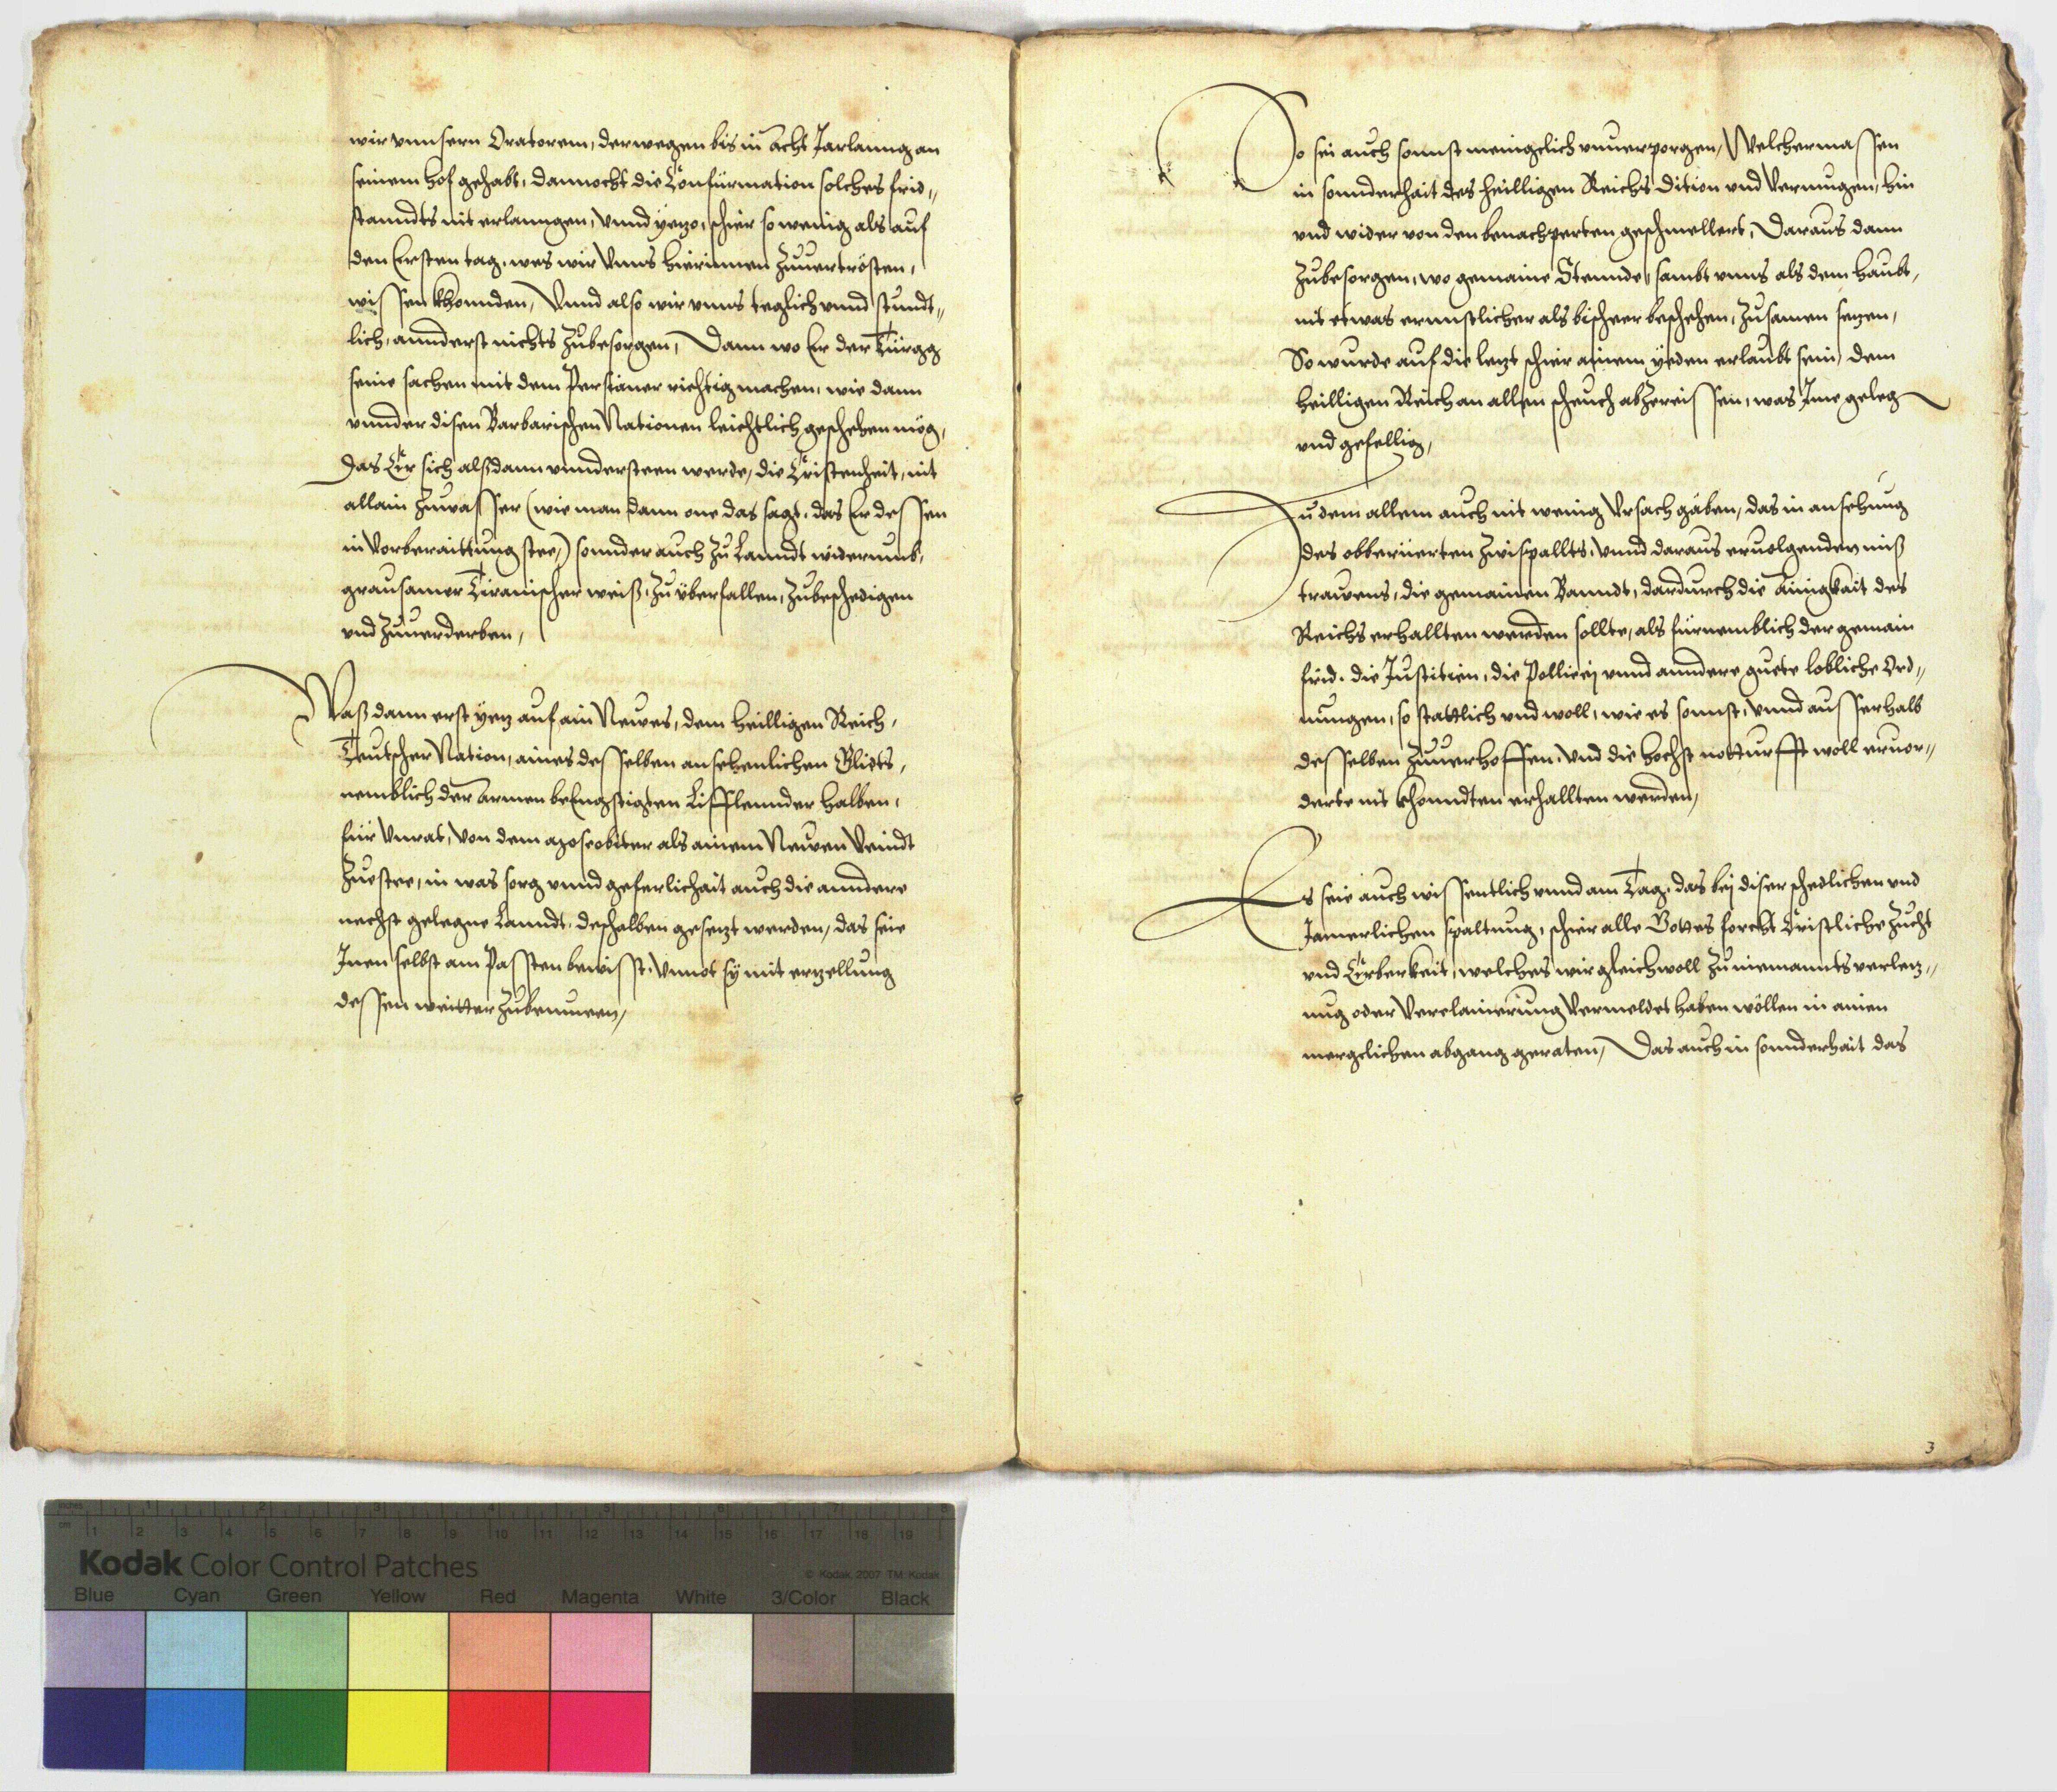 wir vnnsern Oratorem, derwegen bis in acht Jarlanng an
seinem hof gehabt, dannocht die Confirmation solches frid-,
stanndts nit erlanngen, Vnnd yezo, schier so wenig als auf
den Ersten tag, wes wir Vnns hierinnen zuuertrösten,
wissen khonnden, Vnnd also wir vnns teglich vnnd stundt-,
lich, annderst nichts zubesorgen, Dann wo Er der Türgg
seine sachen mit dem Persianer richtig machen, wie dann
vnnder disen Barbarischen Nationen leichtlich geschehen mög,
Das Er sich alßdann vnndersteen werde, die Cristenheit, nit
allain zuwasser (wie man dann one das sagt, das Er dessen
in Vorberaittung stee,) sonnder auch zu Lanndt widerumb,
grausamer Tiranischer weiß, zu überfallen, zubeschedigen
vnd zuuerderben,
Waß dann erst yez auf ain Newes, dem heilligen Reich,
Teutscher Nation, aines desselben ansehenlichen Glidts,
nemblich der armen beEngstigten Lifflennder halben,
für Vnrat, Von dem Moscobiter als ainem Newen Veindt
zuestee, in was sorg vnnd geferlichait auch die anndere
nechst gelegne Lanndt, deshalben gesezt werden, das seie
Inen selbst am Passten bewisst, Vnnot sy mit erzellung
dessen weitter zubemueen,
So sei auch sonnst meniglich vnuerporgen, Welchermassen
in sonnderhait des heilligen Reichs Dition vnd Vermugen, hin
vnd wider von den benachperten geschmellert, Daraus dann
zubesorgen, wo gemaine Stennde, sambt vnns als dem haubt,
nit etwas ernnstlicher als bisheer beschehen, zusamen sezen,
So wurde auf die lezt schier ainem yeden erlaubt sein, dem
heilligen Reich an allen scheuch abzereissen, was Ime geleg
vnd gefellig,
Zu dem allem auch nit wenig Vrsach gäben, das in ansehung
des obberüerten Zwispallts, Vnnd daraus eruolgenden miß
trawens, die gemainen Banndt, dardurch die Ainigkait des
Reichs erhallten werden sollte, als fürnemblich der gemain
frid, die Justitien, die Pollicej vnnd anndere guete lobliche Ord-,
nungen, so stattlich vnd woll, wie es sonnst, Vnnd ausserhalb
desselben zuuerhoffen, Vnd die hochst notturfft woll eruor-,
derte nit khonndten erhallten werden,
Es seie auch wissentlich vnnd am Tag, das bej diser schedlichen vnd
Jamerlichen spaltung, schier alle Gottes forcht Cristliche Zucht
vnd Erberkeit, welches wir gleichwoll zu niemannts verlez-,
ung oder Verclainerung Vermeldet haben wöllen in ainen
mergclichen abgang geraten, Das auch in sonnderhait das
3
Kodak Color Control Patches
© Kodak, 2007 TM: Kodak
Blue Cyan Green Yellow Red Magenta White 3/Color Black